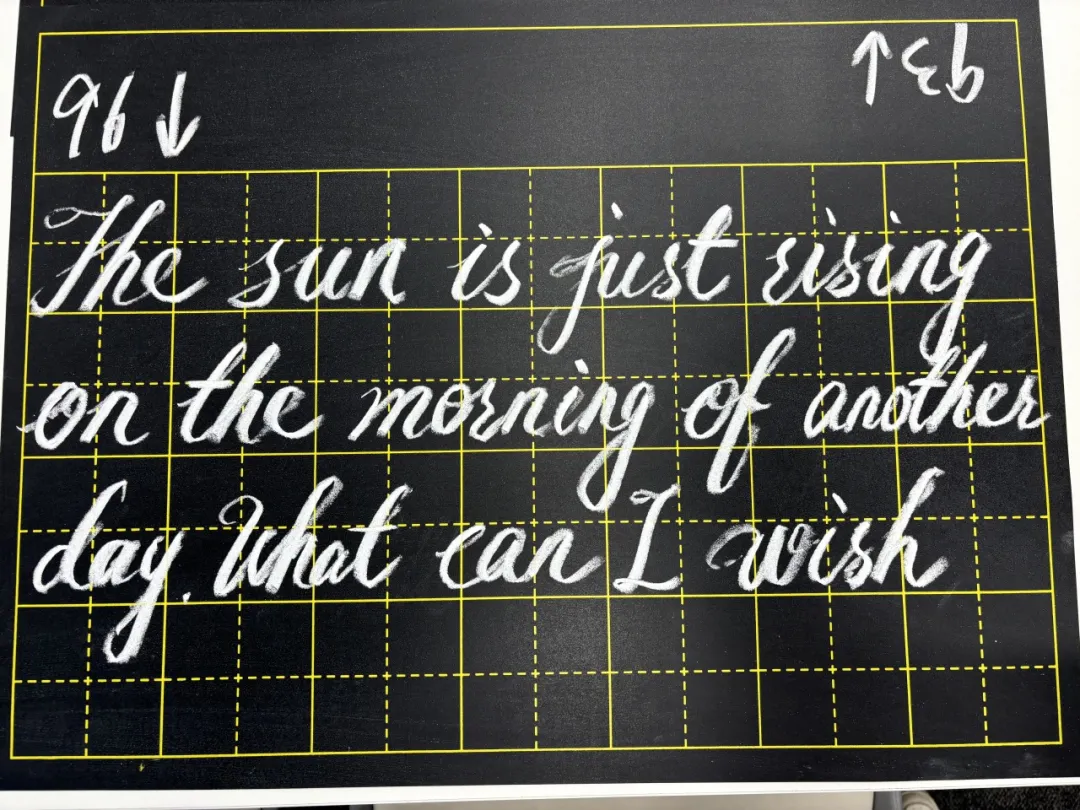 96 ↓
93 ↓
The sun is just rising
on the morning of another
day. What can I wish